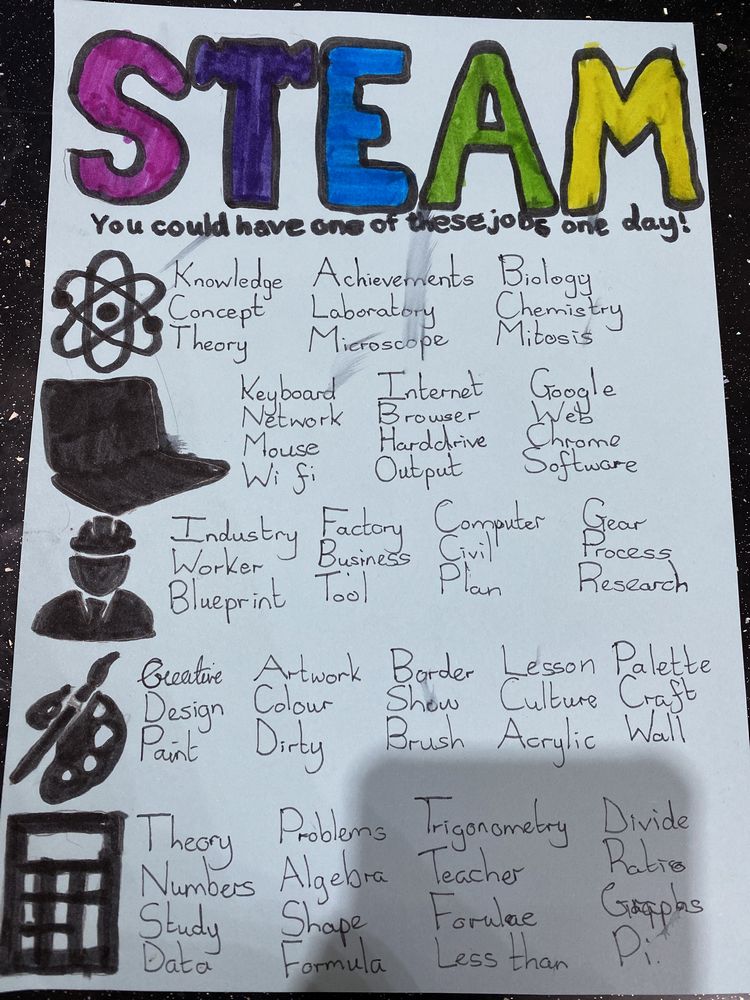 STEAM
You could have one of these jobs one day!
Knowledge Achievements Biology
Concept Laboratory Chemistry
Theory Microscope Mitosis
Keyboard Internet Google
Network Browser Web
Mouse Harddrive Chrome
Wifi Output Software
Industry Factory Computer Gear
Worker Business Civil Process
Blueprint Tool Plan Research
Creative Artwork Border Lesson Palette
Design Colour Show Culture Craft
Paint Dirty Brush Acrylic Wall
Theory Problems Trigonometry Divide
Numbers Algebra Teacher Ratio
Study Shape Forulae Graphs
Data Formula Less than Pi.